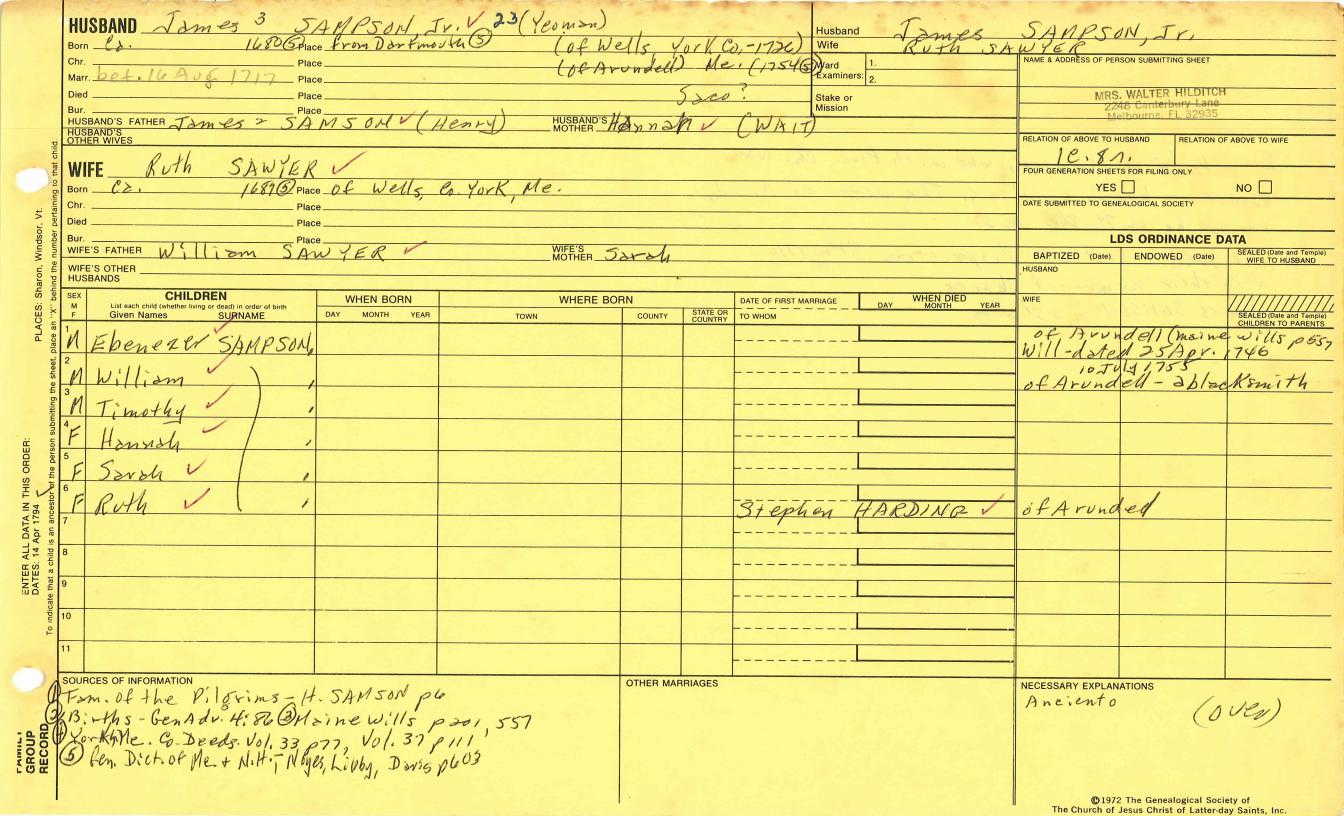 HUSBAND James 3 SAMPSON Jr. ✓ 23 (Yeoman)
Born Ca. 1680 (5) Place from Dartmouth (5) (of Wells, York Co.,-1726)
Chr. Place (of Arundell) Me. (1754 (5))
Marr. bef. 16 Aug 1717 Place
Died Place Saco?
Bur. Place
HUSBAND'S FATHER James 2 SAMSON ✓ (Henry) HUSBAND'S MOTHER Hannah ✓ (WAIT)
HUSBAND'S OTHER WIVES
Husband James SAMPSON, Jr.
Wife Ruth SAWYER
Ward
Examiners: 1.
2.
Stake or
Mission
NAME & ADDRESS OF PERSON SUBMITTING SHEET
MRS. WALTER HILDITCH
2248 Canterbury Lane
Melbourne, FL 32935
RELATION OF ABOVE TO HUSBAND RELATION OF ABOVE TO WIFE
1c.8r.
FOUR GENERATION SHEETS FOR FILING ONLY
YES NO
DATE SUBMITTED TO GENEALOGICAL SOCIETY
WIFE Ruth SAWYER ✓
Born Ca. 1687 (5) Place of Wells, Co. York, Me.
Chr. Place
Died Place
Bur. Place
WIFE'S FATHER William SAWYER ✓ WIFE'S MOTHER Sarah
WIFE'S OTHER
HUSBANDS
LDS ORDINANCE DATA
BAPTIZED (Date) ENDOWED (Date) SEALED (Date and Temple) WIFE TO HUSBAND
HUSBAND
WIFE
SEALED (Date and Temple) CHILDREN TO PARENTS
SEX M F CHILDREN WHEN BORN WHERE BORN DATE OF FIRST MARRIAGE WHEN DIED
List each child (whether living or dead) in order of birth
Given Names SURNAME DAY MONTH YEAR TOWN COUNTY STATE OR COUNTRY TO WHOM DAY MONTH YEAR
1 M Ebenezer SAMPSON, of Arundell (Maine wills p557
Will-dated 25 Apr. 1746
10 July 1755
2 M William ✓ of Arundell - a blacksmith
3 M Timothy ✓
4 F Hannah ✓
5 F Sarah ✓
6 F Ruth ✓ Stephen HARDING ✓ of Arundel
7
8
9
10
11
SOURCES OF INFORMATION
(1) Fam. of the Pilgrims - H. SAMSON p6
(2) Births - Gen Adv. 4:86 (3) Maine Wills p201, 557
(4) York, Me. Co. Deeds Vol. 33 p77, Vol. 37 p111
(5) Gen. Dict. of Me. & N.H., Noyes, Libby, Davis p603
OTHER MARRIAGES
NECESSARY EXPLANATIONS
(over)
©1972 The Genealogical Society of
The Church of Jesus Christ of Latter-day Saints, Inc.
FAMILY GROUP RECORD
ENTER ALL DATA IN THIS ORDER:
DATES: 14 Apr 1794 ✓ PLACES: Sharon, Windsor, Vt.
To indicate that a child is an ancestor of the person submitting the sheet, place an "X" behind the number pertaining to that child.